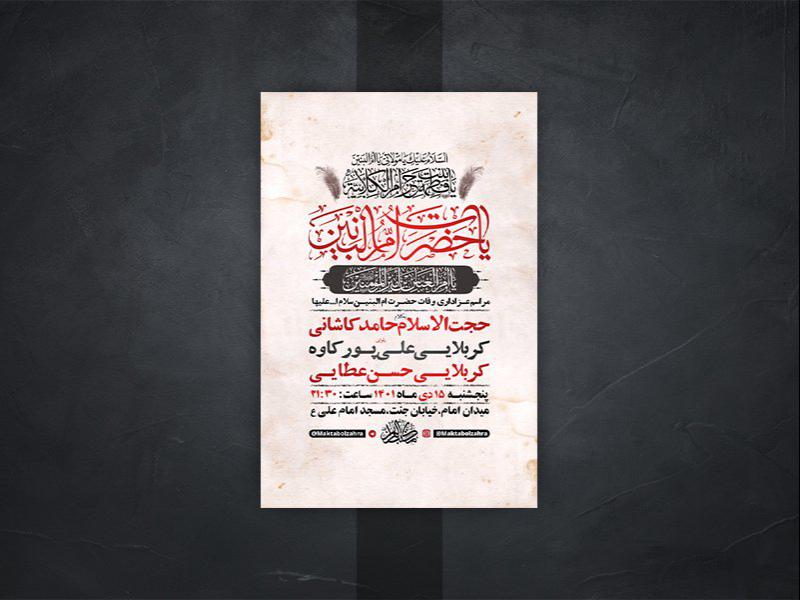 السَّلامُ عَلَیْكِ یا مَوْلاتي یا أُمَّ الْبَنین
یا حضرت ام البنین
مراسم عزاداری وفات حضرت ام البنین سلام ا... علیها
حجت الاسلام حامد کاشانی
کربلایی علی پورکاوه
کربلایی حسن عطایی
پنجشنبه ۱۵ دی ماه ۱۴۰۱ ساعت: ۲۱:۳۰
میدان امام، خیابان جنت، مسجد امام علی ع
@Maktabolzahra @Maktabolzahra